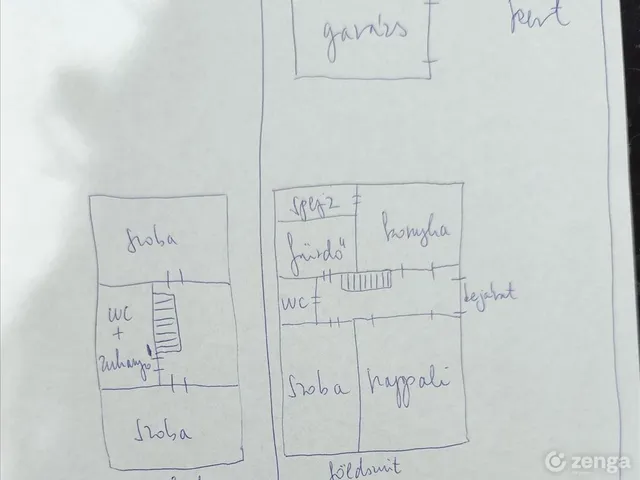 garázs
kert
spejz
konyha
fürdő
WC
bejárat
szoba
nappali
földszint
szoba
WC
+
zuhanyzó
szoba
zenga